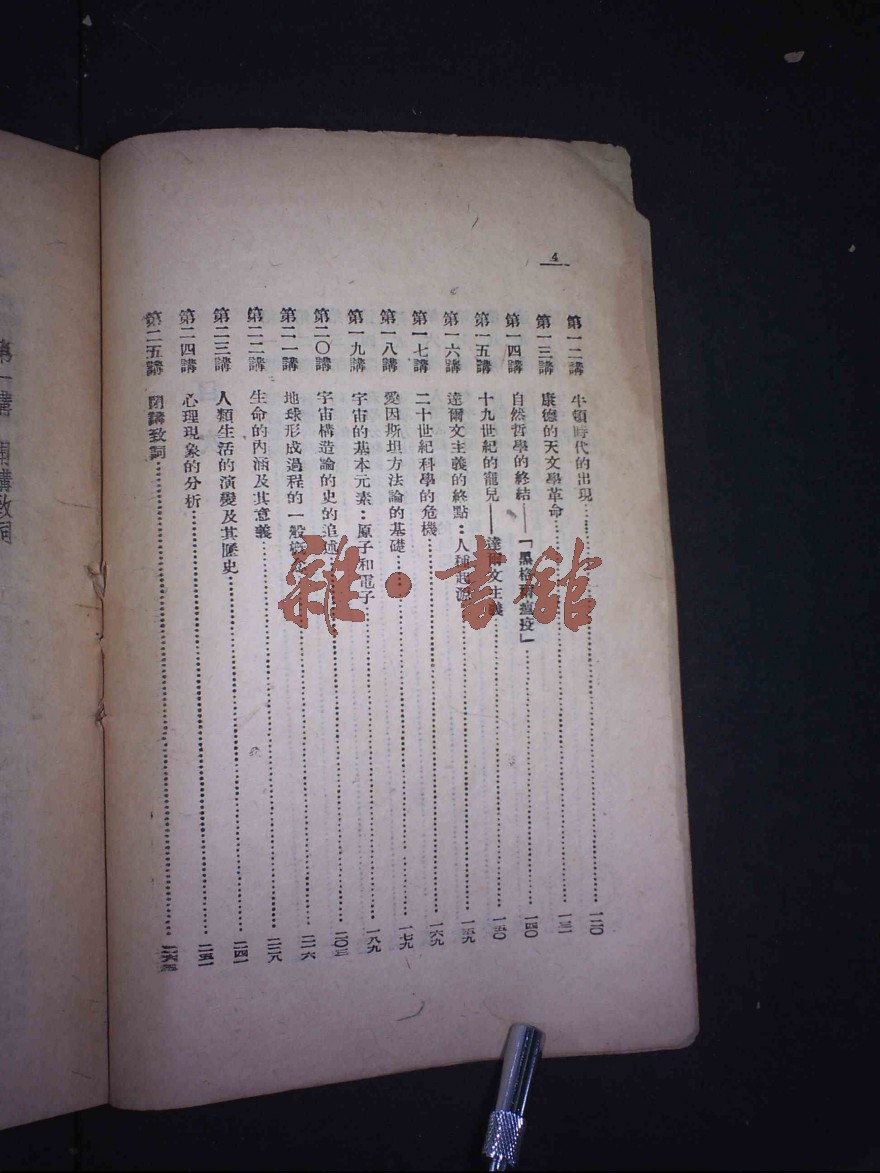 4
第一二講 牛頓時代的出現 一二〇
第一三講 康德的天文學革命 一三一
第一四講 自然哲學的終結——「黑格爾瘟疫」 一四〇
第一五講 十九世紀的寵兒——達爾文主義 一五〇
第一六講 達爾文主義的終點：人種起源 一五九
第一七講 二十世紀科學的危機 一六九
第一八講 愛因斯坦方法論的基礎 一七九
第一九講 宇宙的基本元素：原子和電子 一八九
第二〇講 宇宙構造論的史的追述 二〇三
第二一講 地球形成過程的一般 二一六
第二二講 生命的內涵及其意義 二二八
第二三講 人類生活的演變及其歷史 二四一
第二四講 心理現象的分析 二五一
第二五講 閉講致詞
雜·書館
第一講 開講致詞